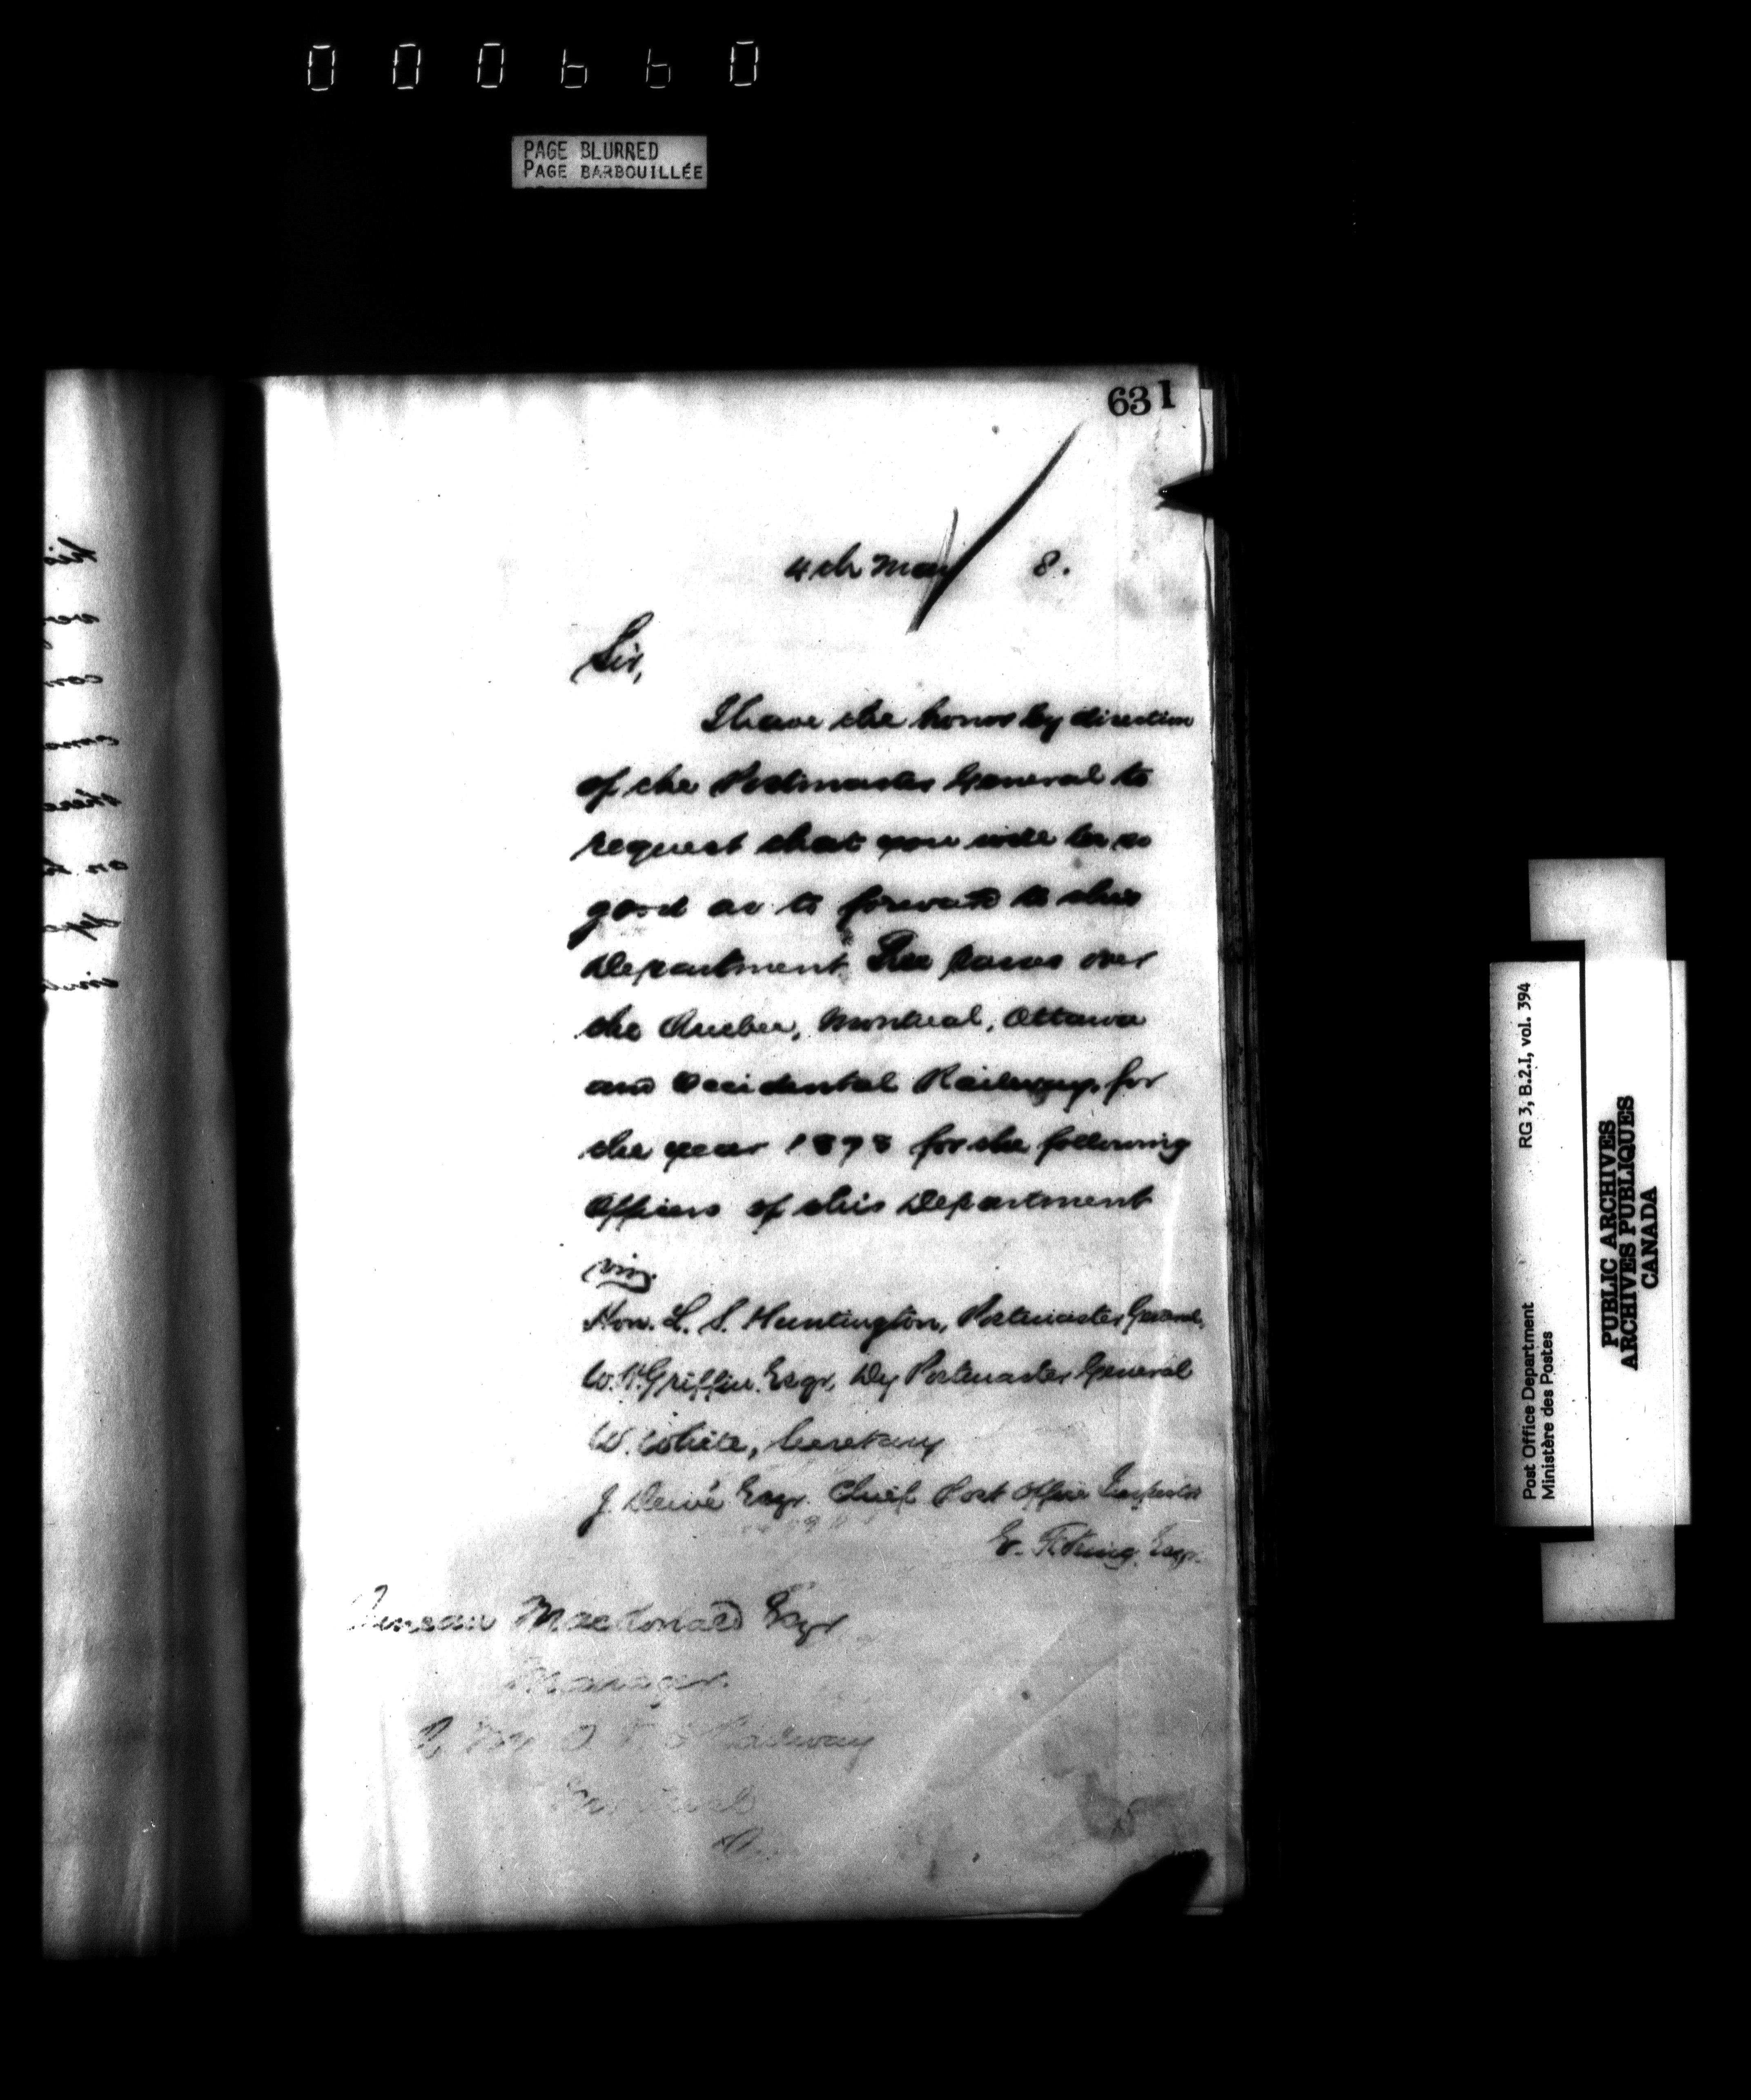 000660
PAGE BLURRED
PAGE BARBOUILLÉE
631
4th May 8.
Sir,
I have the honor by direction
of the Postmaster General to
request that you will be so
good as to forward to this
Department Free Passes over
the Quebec, Montreal, Ottawa
and Occidental Railway, for
the year 1878 for the following
Officers of this Department
viz.
Hon. L. S. Huntington, Postmaster General,
W. H. Griffin Esqr, Dy Postmaster General
W. White, Secretary
J. Dewé Esqr. Chief Post Office Inspector
E. F. King, Esqr.
Duncan Macdonald Esqr
Manager
Q. M. O. & O. Railway
Montreal
Post Office Department RG 3, B.2.1, vol. 394
Ministère des Postes
PUBLIC ARCHIVES
ARCHIVES PUBLIQUES
CANADA